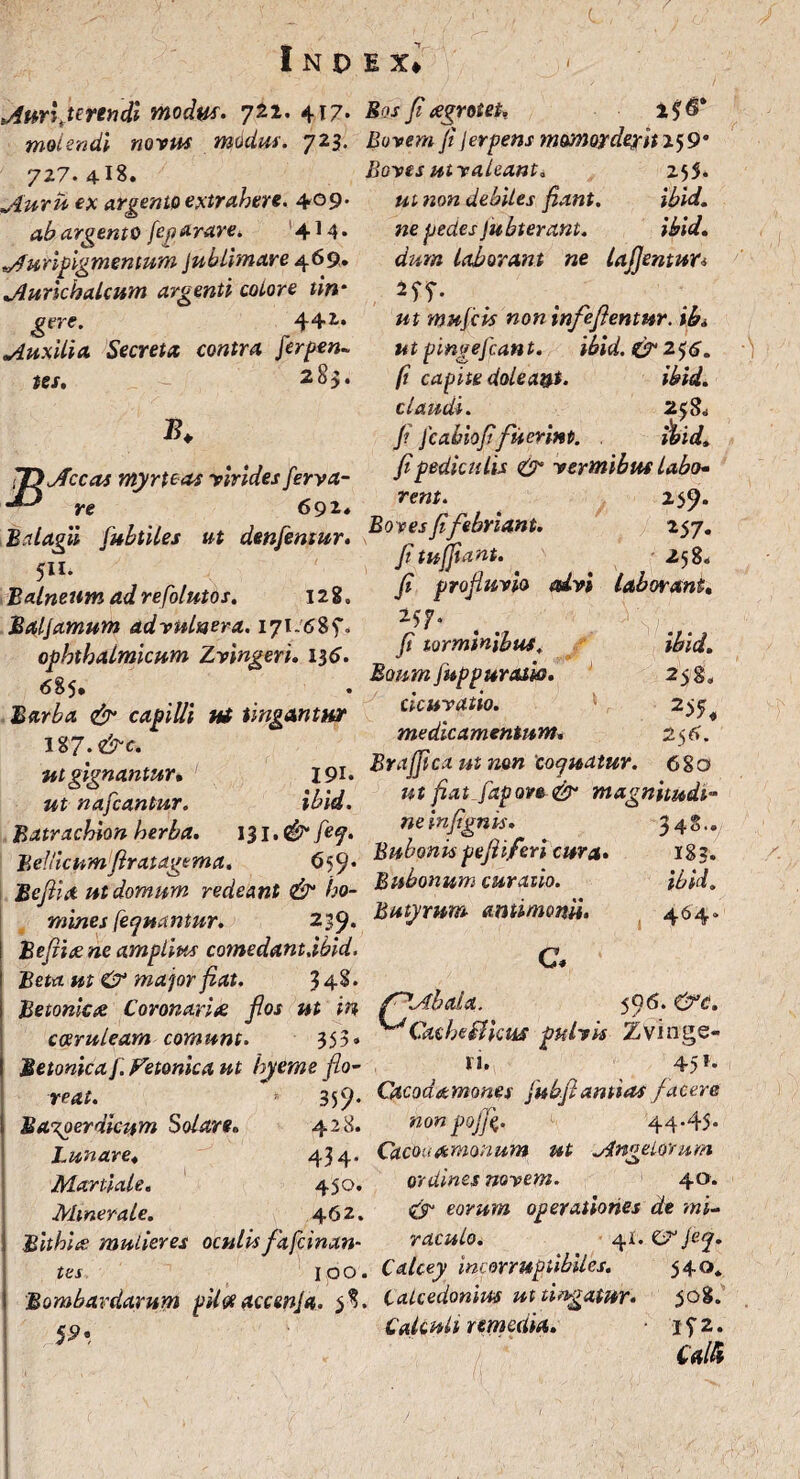 INDEX.
Auri terendi modus. 722. 417.
molendi novus modus. 723.
727. 418.
Aurũ ex argento extrahere. 409.
ab argento separare. 414.
Auripigmentum sublimare 469.
Aurichalcum argenti colore tin-
gere. 442.
Auxilia Secreta contra serpen-
tes. 283.
B.
BAccas myrteas virides serva-
re 692.
Balagii subtiles ut densentur.
511.
Balneum ad resolutos. 128.
Balsamum ad vulnera. 171. 685.
ophthalmicum Zvingeri. 136.
685.
Barba & capilli ut tingantur
187. &c.
ut gignantur. 191.
ut nascantur. ibid.
Batrachion herba. 131. & seq.
Bellicum stratagema. 659.
Bestia ut domum redeant & ho-
mines sequantur. 239.
Bestiæ ne amplius comedant. ibid.
Beta ut & major fiat. 348.
Betonicæ Coronariæ flos ut in
cœruleam comunt. 353.
Betonica s. Vetonica ut hyeme flo-
reat. 359.
Bazoerdicum Solare. 428.
Lunare. 434.
Martiale. 450.
Minerale. 462.
Bithiæ mulieres oculis fascinan-
tes 100.
Bombardarum pilæ accensa. 58.
59.
Bos si ægrotet. 256.
Bovem si serpens momorderit 259.
Boves ut valeant. 255.
ut non debiles fiant. ibid.
ne pedes subterant. ibid.
dum laborant ne lassentur.
255.
ut muscis non infestentur. ib.
ut pingescant. ibid. & 256.
si capite doleant. ibid.
claudi. 258.
si scabiosi fuerint. ibid.
si pediculis & vermibus labo-
rent. 259.
Boves si febriant. 257.
si tussiant. 258.
si profluvio alvi laborant.
257.
si torminibus. ibid.
Boum suppuratio. 258.
cicuratio. 255.
medicamentum. 256.
Brassica ut non coquatur. 680
ut fiat sapore & magnitudi-
ne insignis. 348.
Bubonis pestiferi cura. 183.
Bubonum curatio. ibid.
Butyrum antimonii. 464.
C.
CAbala. 596. &c.
Cachecticus pulvis Zvinge-
ri. 451.
Cacodæmones substantias facere
non posse. 44.45.
Cacodæmonum ut Angelorum
ordines novem. 40.
& eorum operationes de mi-
raculo. 41. & seq.
Calcey incorruptibiles. 540.
Calcedonius ut tingatur. 508.
Calculi remedia. 152.
Calli